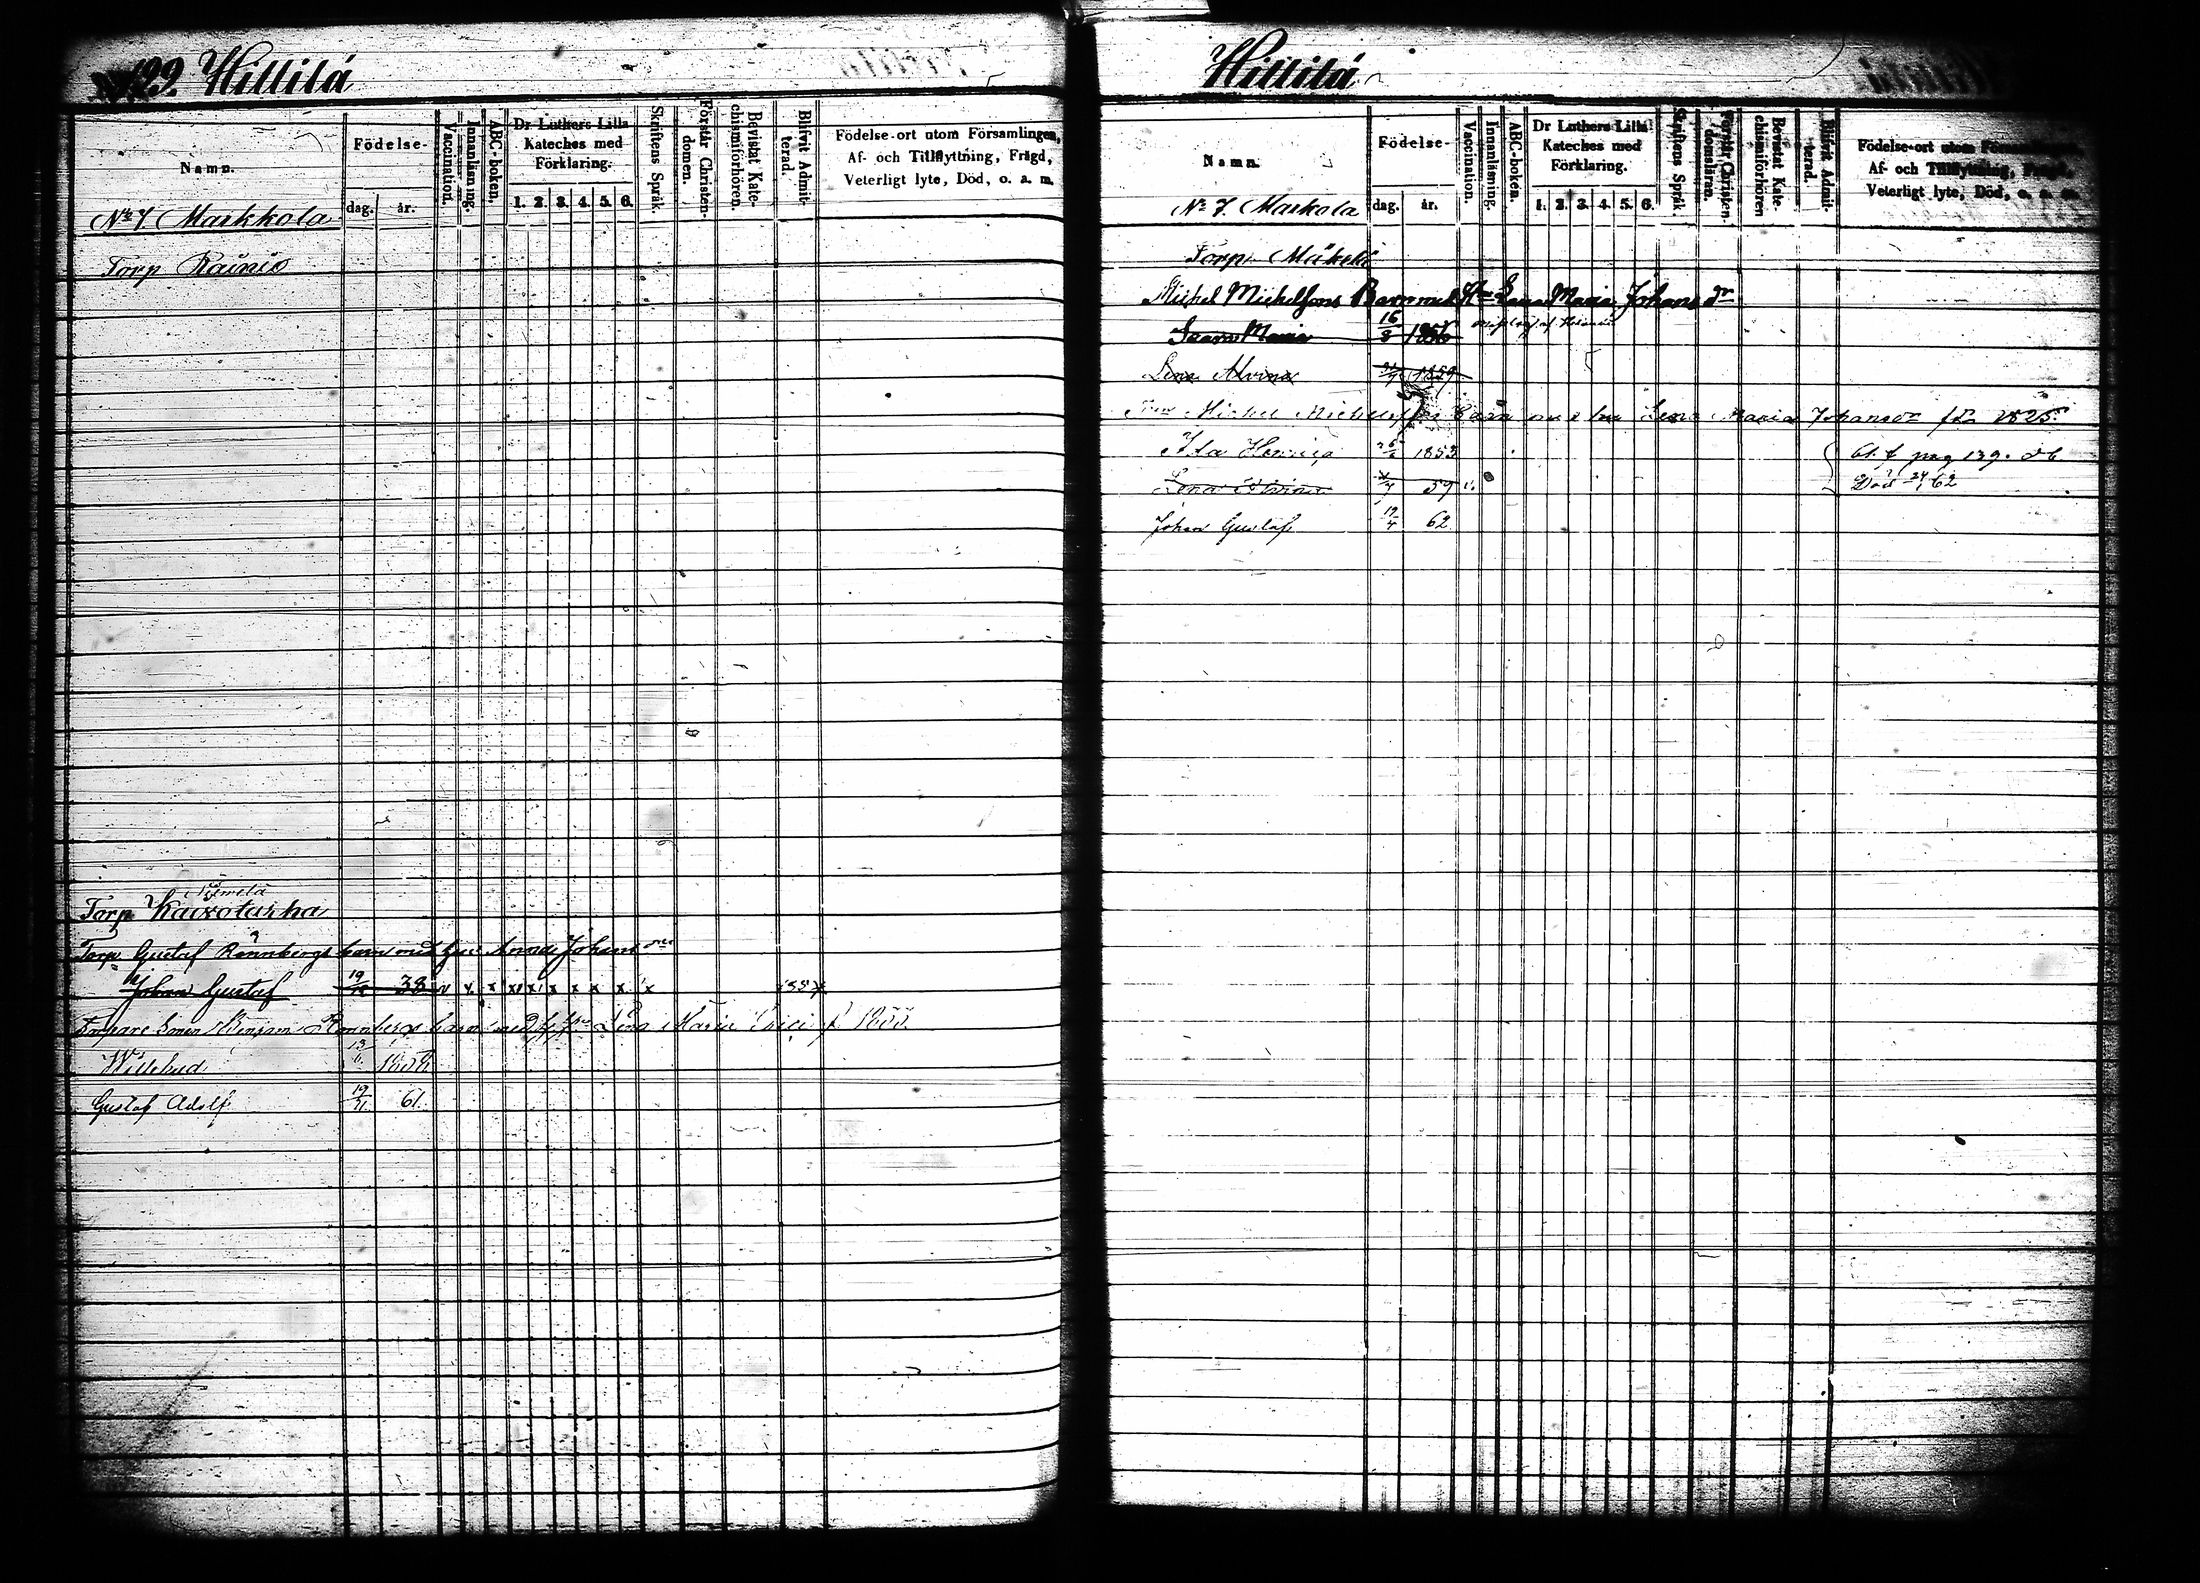 122. Hillilä
Namn.
Födelse-
dag. år.
Vaccination.
Innanläsning.
ABC-boken.
Dr Luthers Lilla Kateches med Förklaring.
1. 2. 3. 4. 5. 6.
Skriftens Språk.
Förstår Christendomen.
Bevistat Katechismiförhören.
Blifvit Admitterad.
Födelse-ort utom Församlingen, Af- och Tillflyttning, Frägd, Veterligt lyte, Död, o. a. m.
No 7 Markkola
Torp Rainio
Niemelä
Torp Kaivotarha
Torp. Gustaf Rönnbergs barn med hu Johans dr
Johan Gustaf 19/12 38 v x x x x x x x x x 55
Torpare Sonen Rönnbergs barn med Lena Maria Erici f 1833
Willehad 13/6 1858
Gustaf Adolf 19/11 61
Hillilä
Namn.
Födelse-
dag. år.
Vaccination.
Innanläsning.
ABC-boken.
Dr Luthers Lilla Kateches med Förklaring.
1. 2. 3. 4. 5. 6.
Skriftens Språk.
Förstår Christendomsläran.
Bevistat Katechismiförhören
Blifvit Admitterad.
Födelse-ort utom Församlingen, Af- och Tillflyttning, Frägd, Veterligt lyte, Död, o. a. m.
No 7. Markola
Torp Mäkelä
Michel Michelsons Barn med Hu Lena Maria Johans dr
Maria 16/8 1856
Lena Alvina 1859
Michel Michelssons barn med hu Lena Maria Johansdr fdd 1825
Ida 1853 pag 139.
Lena Alvina 59 v. Död 62
Johan Gustaf 19/4 62